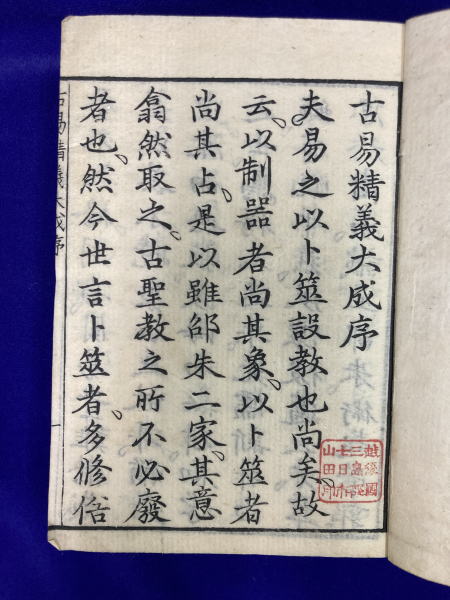 古易精義大成序
夫易之以卜筮設教也尚矣故
云以制器者尚其象以卜筮者
尚其占是以雖邵朱二家其意
翕然取之古聖教之所不必廢
者也然今世言卜筮者多修俗
古易精義大成序
一
越後國
三島郡
七日市
山田